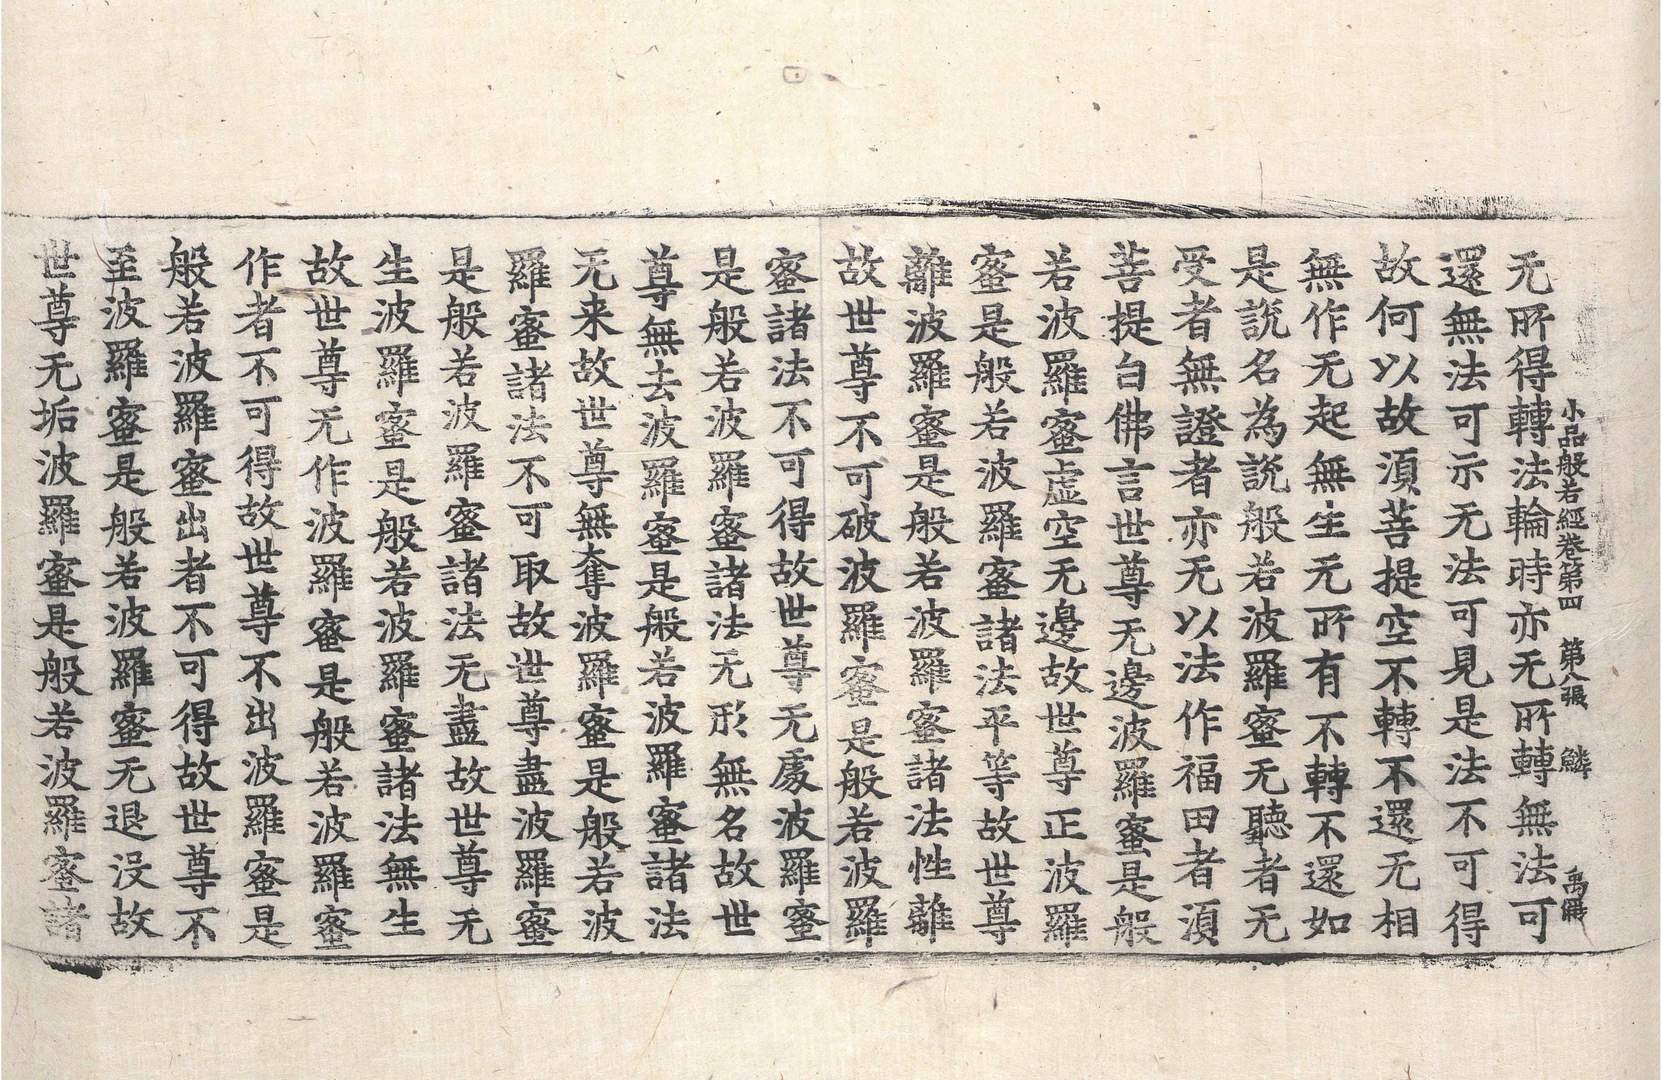 小品般若經卷第四 第八張 鱗 禹
无所得轉法輪時亦无所轉無法可
還無法可示无法可見是法不可得
故何以故須菩提空不轉不還无相
無作无起無生无所有不轉不還如
是說名為說般若波羅蜜无聽者无
受者無證者亦无以法作福田者須
菩提白佛言世尊无邊波羅蜜是般
若波羅蜜虛空无邊故世尊正波羅
蜜是般若波羅蜜諸法平等故世尊
離波羅蜜是般若波羅蜜諸法性離
故世尊不可破波羅蜜是般若波羅
蜜諸法不可得故世尊无處波羅蜜
是般若波羅蜜諸法无形無名故世
尊無去波羅蜜是般若波羅蜜諸法
无来故世尊無奪波羅蜜是般若波
羅蜜諸法不可取故世尊盡波羅蜜
是般若波羅蜜諸法无盡故世尊无
生波羅蜜是般若波羅蜜諸法無生
故世尊无作波羅蜜是般若波羅蜜
作者不可得故世尊不出波羅蜜是
般若波羅蜜出者不可得故世尊不
至波羅蜜是般若波羅蜜无退没故
世尊无垢波羅蜜是般若波羅蜜諸